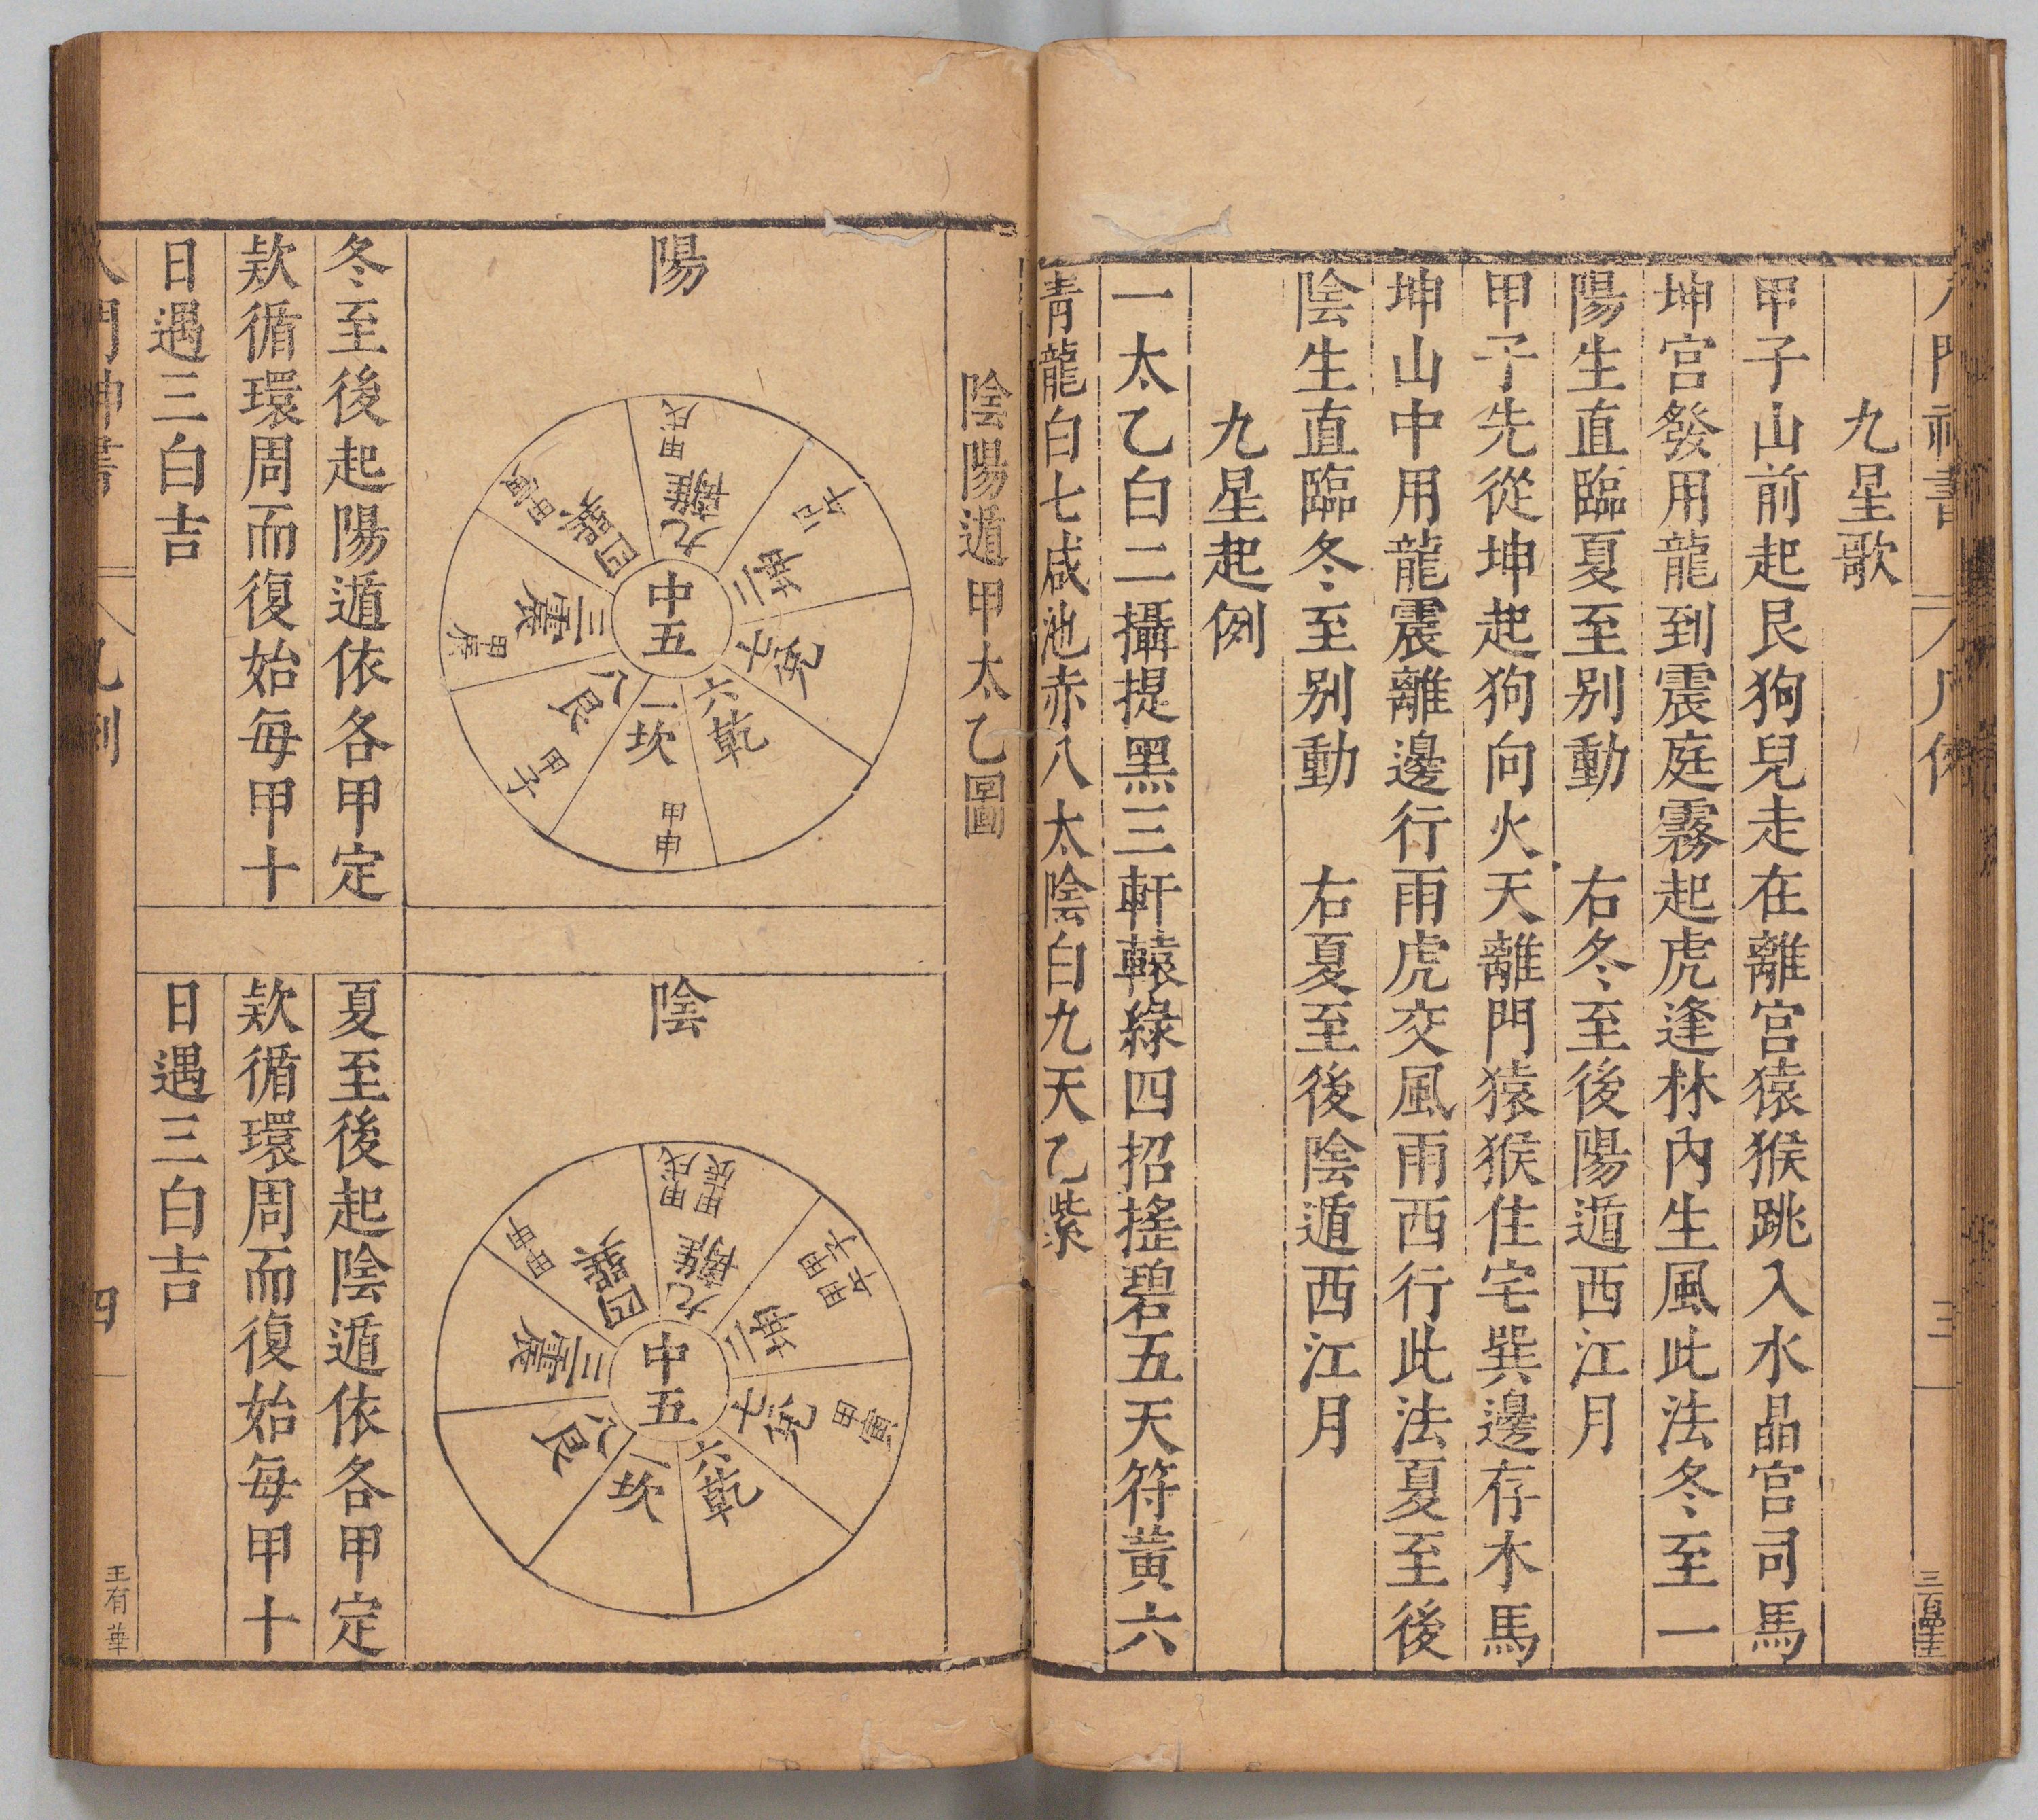 九星歌
甲子山前起艮狗兒走在離宮猿猴跳入水晶宮司馬
坤宮發用龍到震庭霧起虎逢林內生風此法冬至一
陽生直臨夏至別動　右冬至後陽遁西江月
甲子先從坤起狗向火天離門猿猴住宅巽邊存木馬
坤山中用龍震離邊行雨虎交風雨西行此法夏至後
陰生直臨冬至別動　右夏至後陰遁西江月
九星起例
一太乙白二攝提黑三軒轅綠四招搖碧五天符黃六
青龍白七咸池赤八太陰白九天乙紫
陰陽遁甲太乙圖
陽
中五
九離
甲戌
二坤
七兌
六乾
一坎
甲申
八艮
甲子
三震
甲辰
四巽
甲寅
冬至後起陽遁依各甲定
欵循環周而復始每甲十
日遇三白吉
陰
中五
九離
甲戌
甲辰
二坤
七兌
甲寅
六乾
一坎
八艮
三震
四巽
甲申
夏至後起陰遁依各甲定
欵循環周而復始每甲十
日遇三白吉
四
王有華